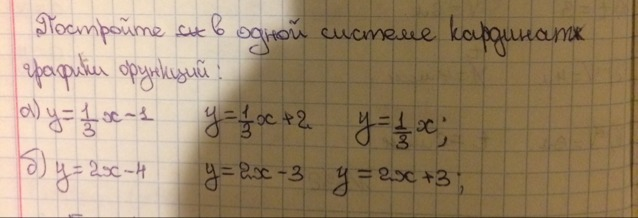 Постройте в одной системе кардинат
графики функций:
а) y = 1/3 x - 1 y = 1/3 x + 2 y = 1/3 x;
б) y = 2x - 4 y = 2x - 3 y = 2x + 3;